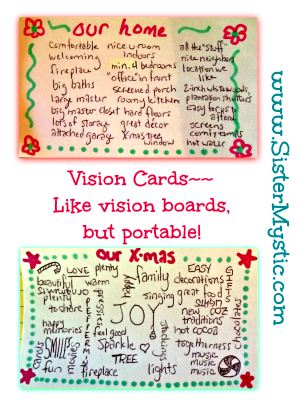 our home
comfortable
welcoming
fireplace
big baths
large master
big master closet
lots of storage
attached garage
nice v room
indoors
min. 4 bedrooms
"office" in front
screened porch
roomy kitchen
hard floors
great decor
Xmas tree
window
all the "stuff"
nice neighbors
location we
like
2-inch white woods,
plantation shutters
easy for us to
afford
screens
comfy temps
hot water
Vision Cards~~
Like vision boards,
but portable!
www.SisterMystic.com
our X-mas
LOVE
plenty
beautiful
warm
plenty
to share
happy
memories
cards
SMILE
fun
movies
PEPPERMINT
feel good
Sparkle
TREE
fireplace
JOY
happy
family
singing
stockings
lights
EASY
decorations
great food
new
hot cocoa
togetherness
music
music
music
GIFTS
chocolates